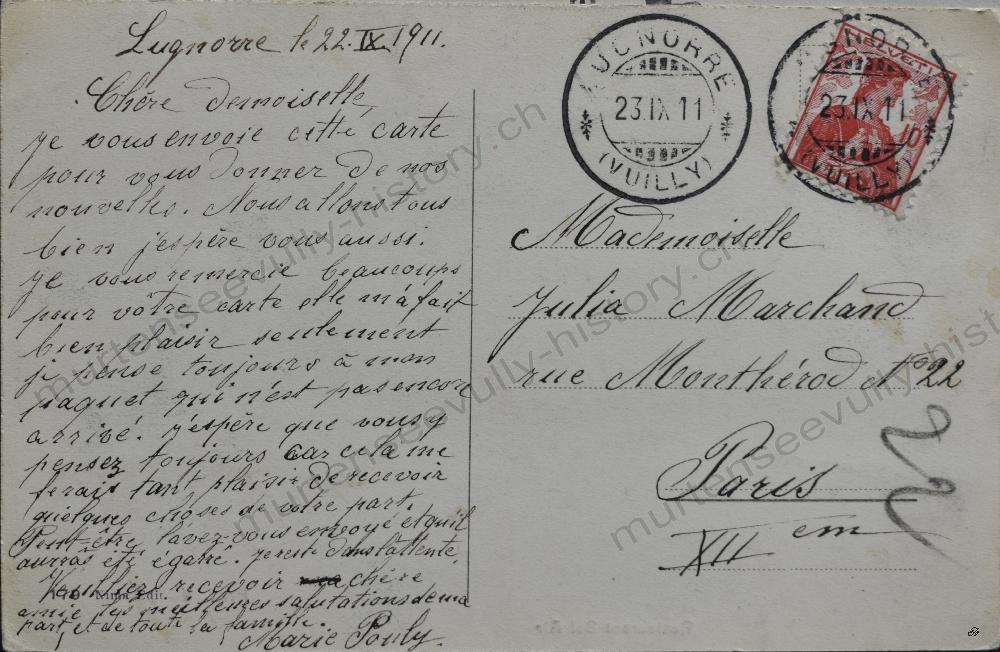 Lugnorre le 22.IX 1911.
Chère Demoiselle,
Je vous envoie cette carte
pour vous donner de nos
nouvelles. Nous allons tous
bien j'espère vous aussi.
Je vous remercie beaucoups
pour vôtre carte elle m'a fait
bien plaisir seulement
je pense toujours à mon
paquet qui n'est pas encore
arrivé. J'espère que vous y
pensez toujours car cela me
ferais tant plaisir de recevoir
quelques choses de votre part.
Peut-être l'avez-vous envoyé et qu'il
aurras été égarré. Je reste dans l'attente.
Veuilliez recevoir chère
amie les meilleures salutations de ma
part, et de toute la famille.
Marie Pouly.
Edit.
LUGNORRE
23.IX 11
(VUILLY)
LUGNORRE
23.IX 11
(VUILLY)
HELVETIA
10
Mademoiselle
Julia Marchand
rue Monthérod No 22
Paris
XII em
22
murtenseevully-history.ch
murtenseevully-history.ch
murtenseevully-history.ch
murtenseevully-history.ch